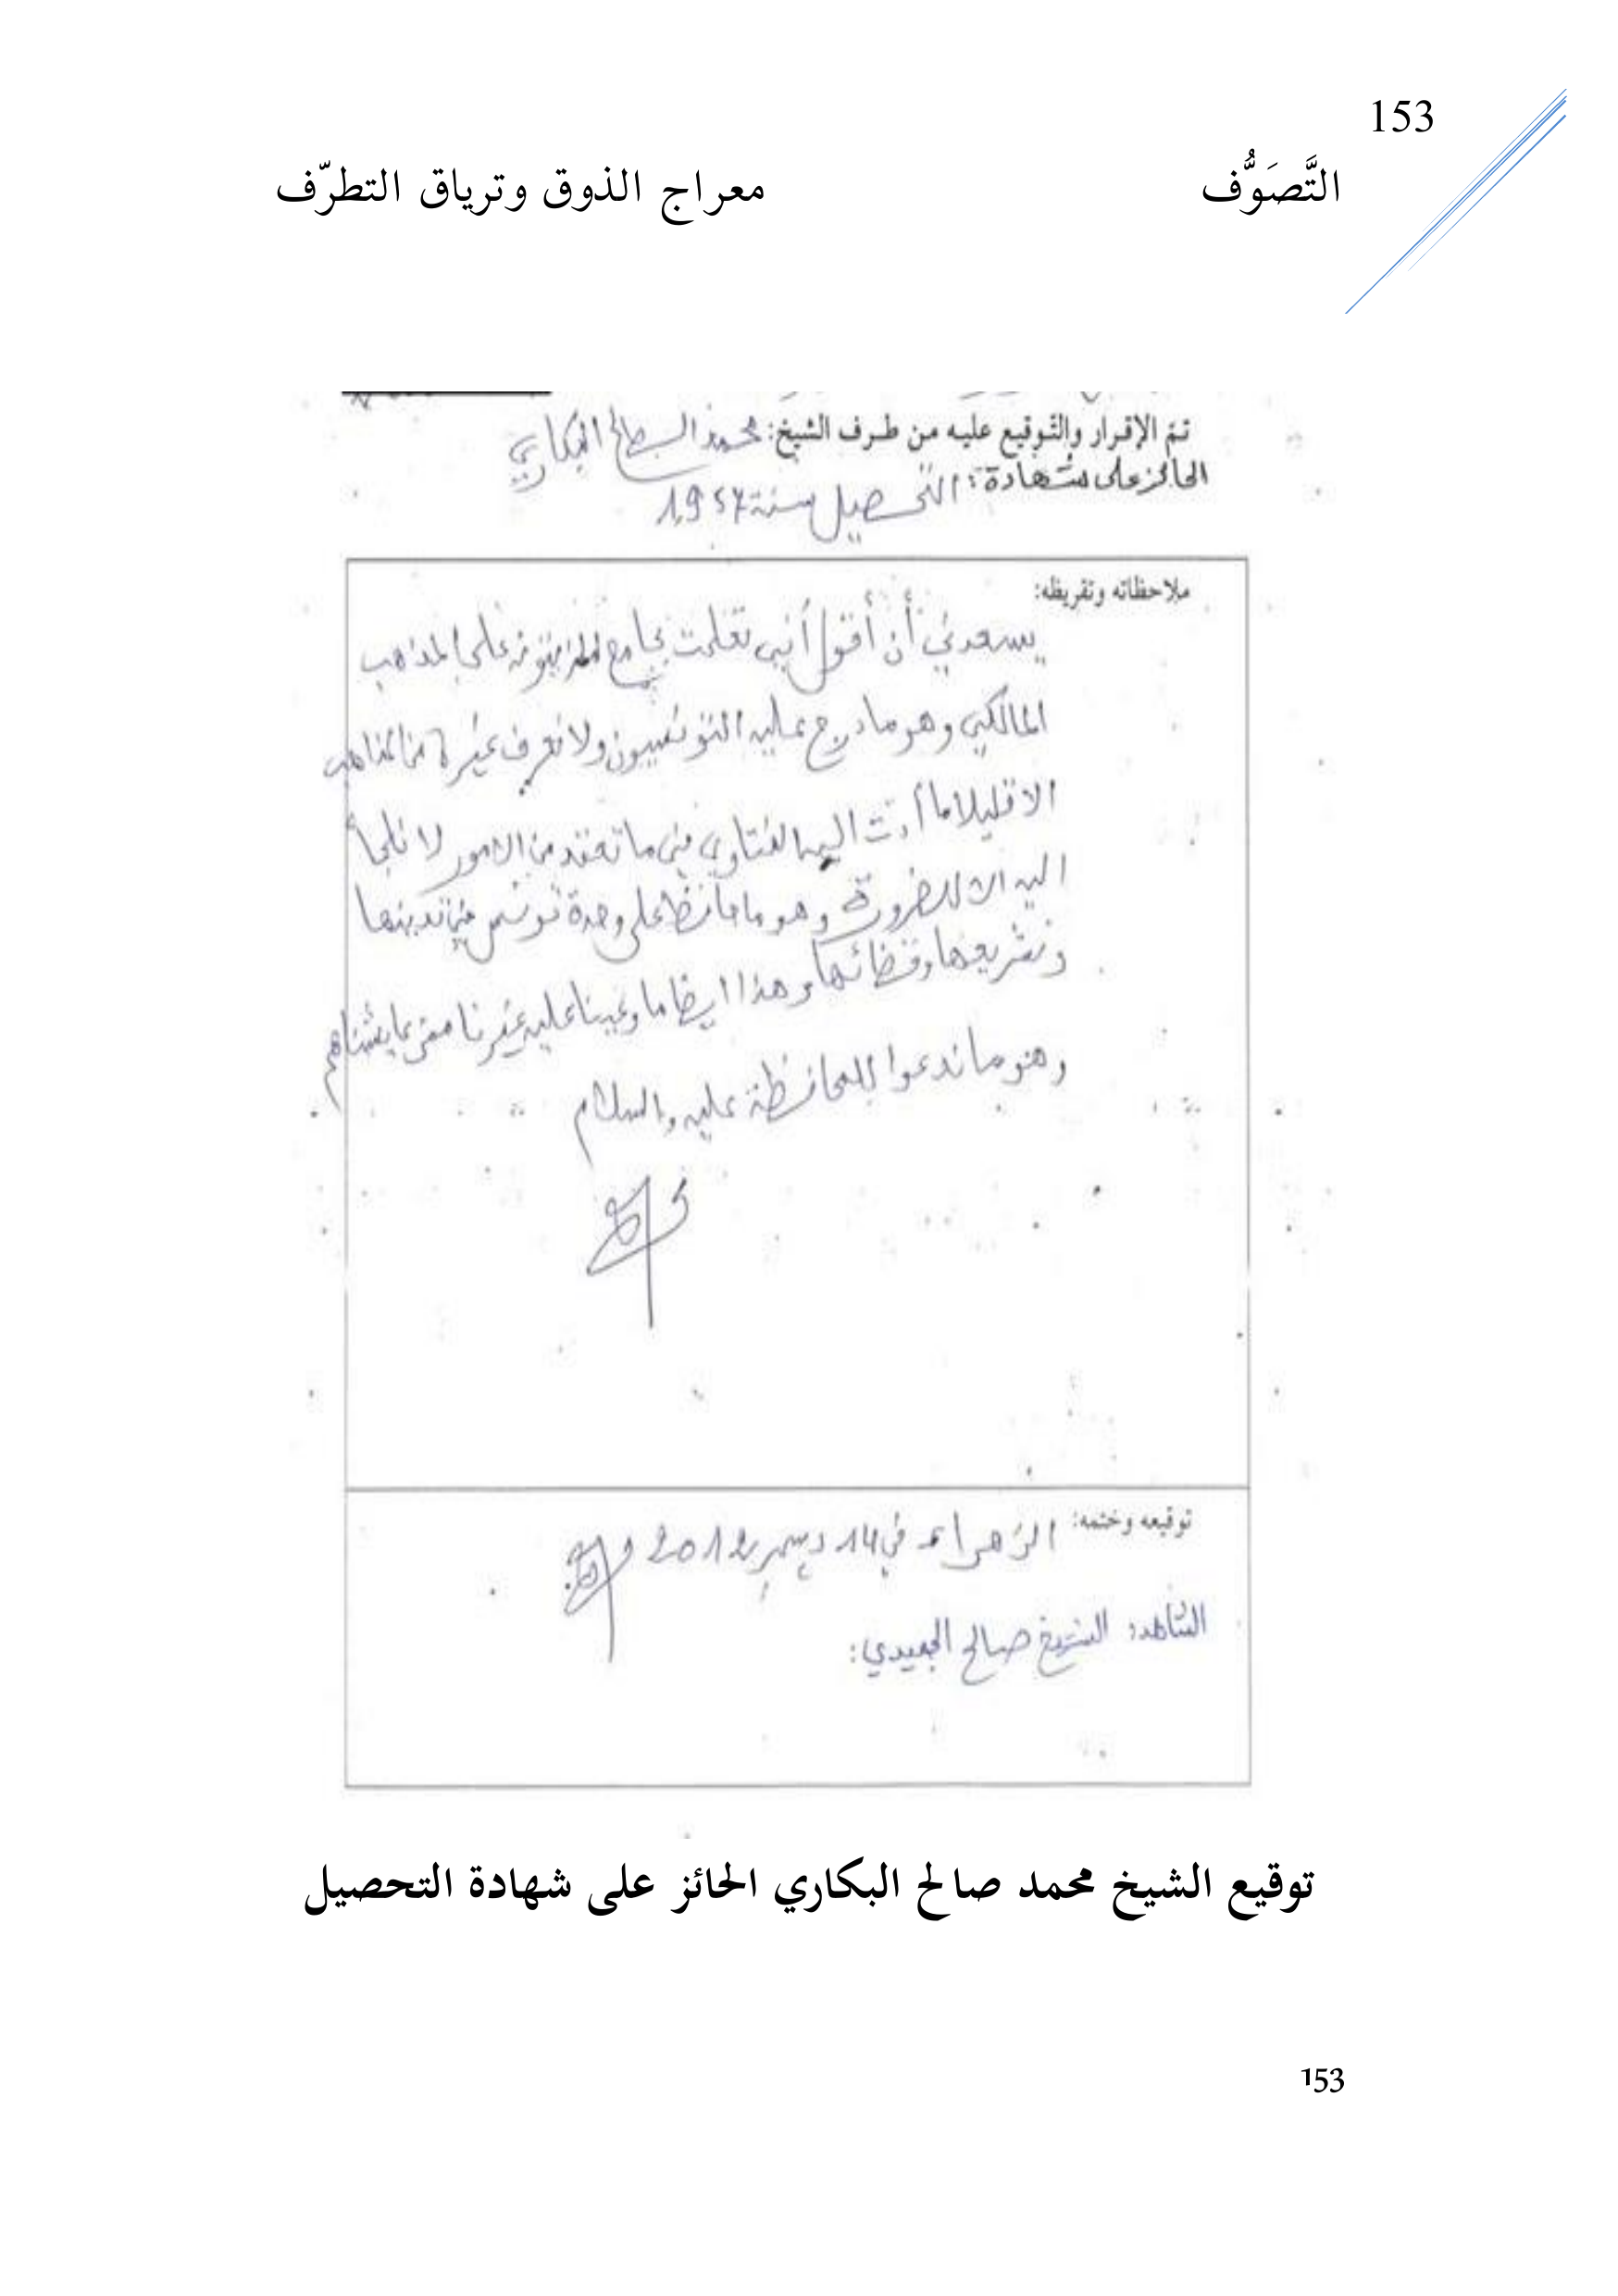 153
التَّصَوُّف معراج الذوق وترياق التطرّف
تمّ الإقرار والتّوقيع عليه من طرف الشيخ: محمد الصالح البكاري
الحائز على شهادة: التحصيل سنة 1957
ملاحظاته وتقريظه:
يسعدني أن أقول أنني تعلمت بجامع الزيتونة على المذهب
المالكي وهو ما درج عليه التونسيون ولا نعرف غيره من المذاهب
الا قليلا ما أدت اليه الفتاوي في ما تعقد من الامور لا نلجأ
اليه الا للضرورة وهو ما حافظ على وحدة تونس في تدينها
وتشريعها وقضائها وهذا ايضا ما وعينا عليه غيرنا ممن عايشناهم
وهو ما ندعوا للمحافظة عليه والسلام
توقيعه وختمه: الزهراء في 14 ديسمبر 2012
الشاهد: الشيخ صالح الجعيدي:
توقيع الشيخ محمد صالح البكاري الحائز على شهادة التحصيل
153